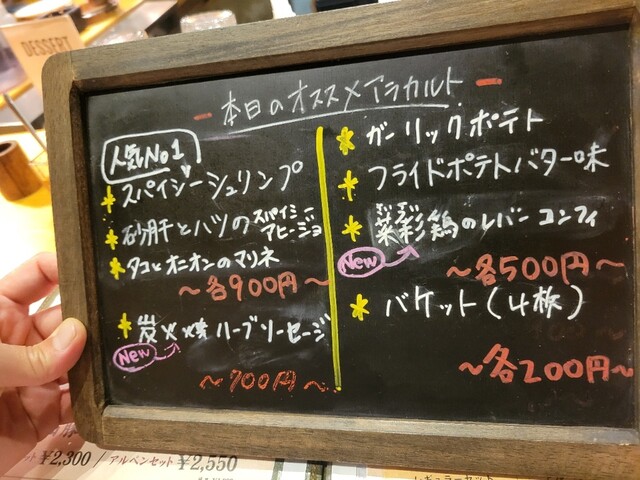 DESSERT
ー 本日のオススメアラカルト ー
人気No1
スパイシーシュリンプ
砂肝とハツのスパイシーアヒージョ
タコとオニオンのマリネ
〜各900円〜
炭火焼ハーブソーセージ
New
〜700円〜
ガーリックポテト
フライドポテトバター味
菜彩鶏のレバーコンフィ
New
〜各500円〜
バケット(4枚)
〜各200円〜
ット ¥2,300 / アルペンセット ¥2,550
レギュラーセット